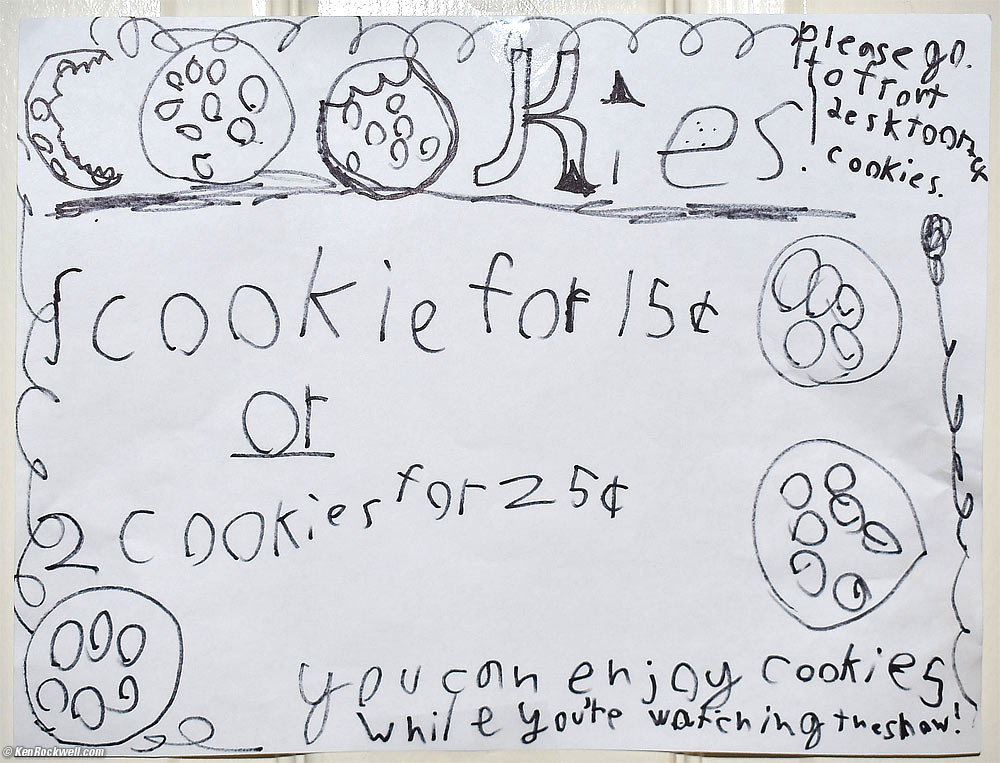 COOKies.
please go
to front
desk to order
cookies.
1 cookie for 15¢
or
2 cookies for 25¢
you can enjoy cookies
while you're watching the show!
© KenRockwell.com